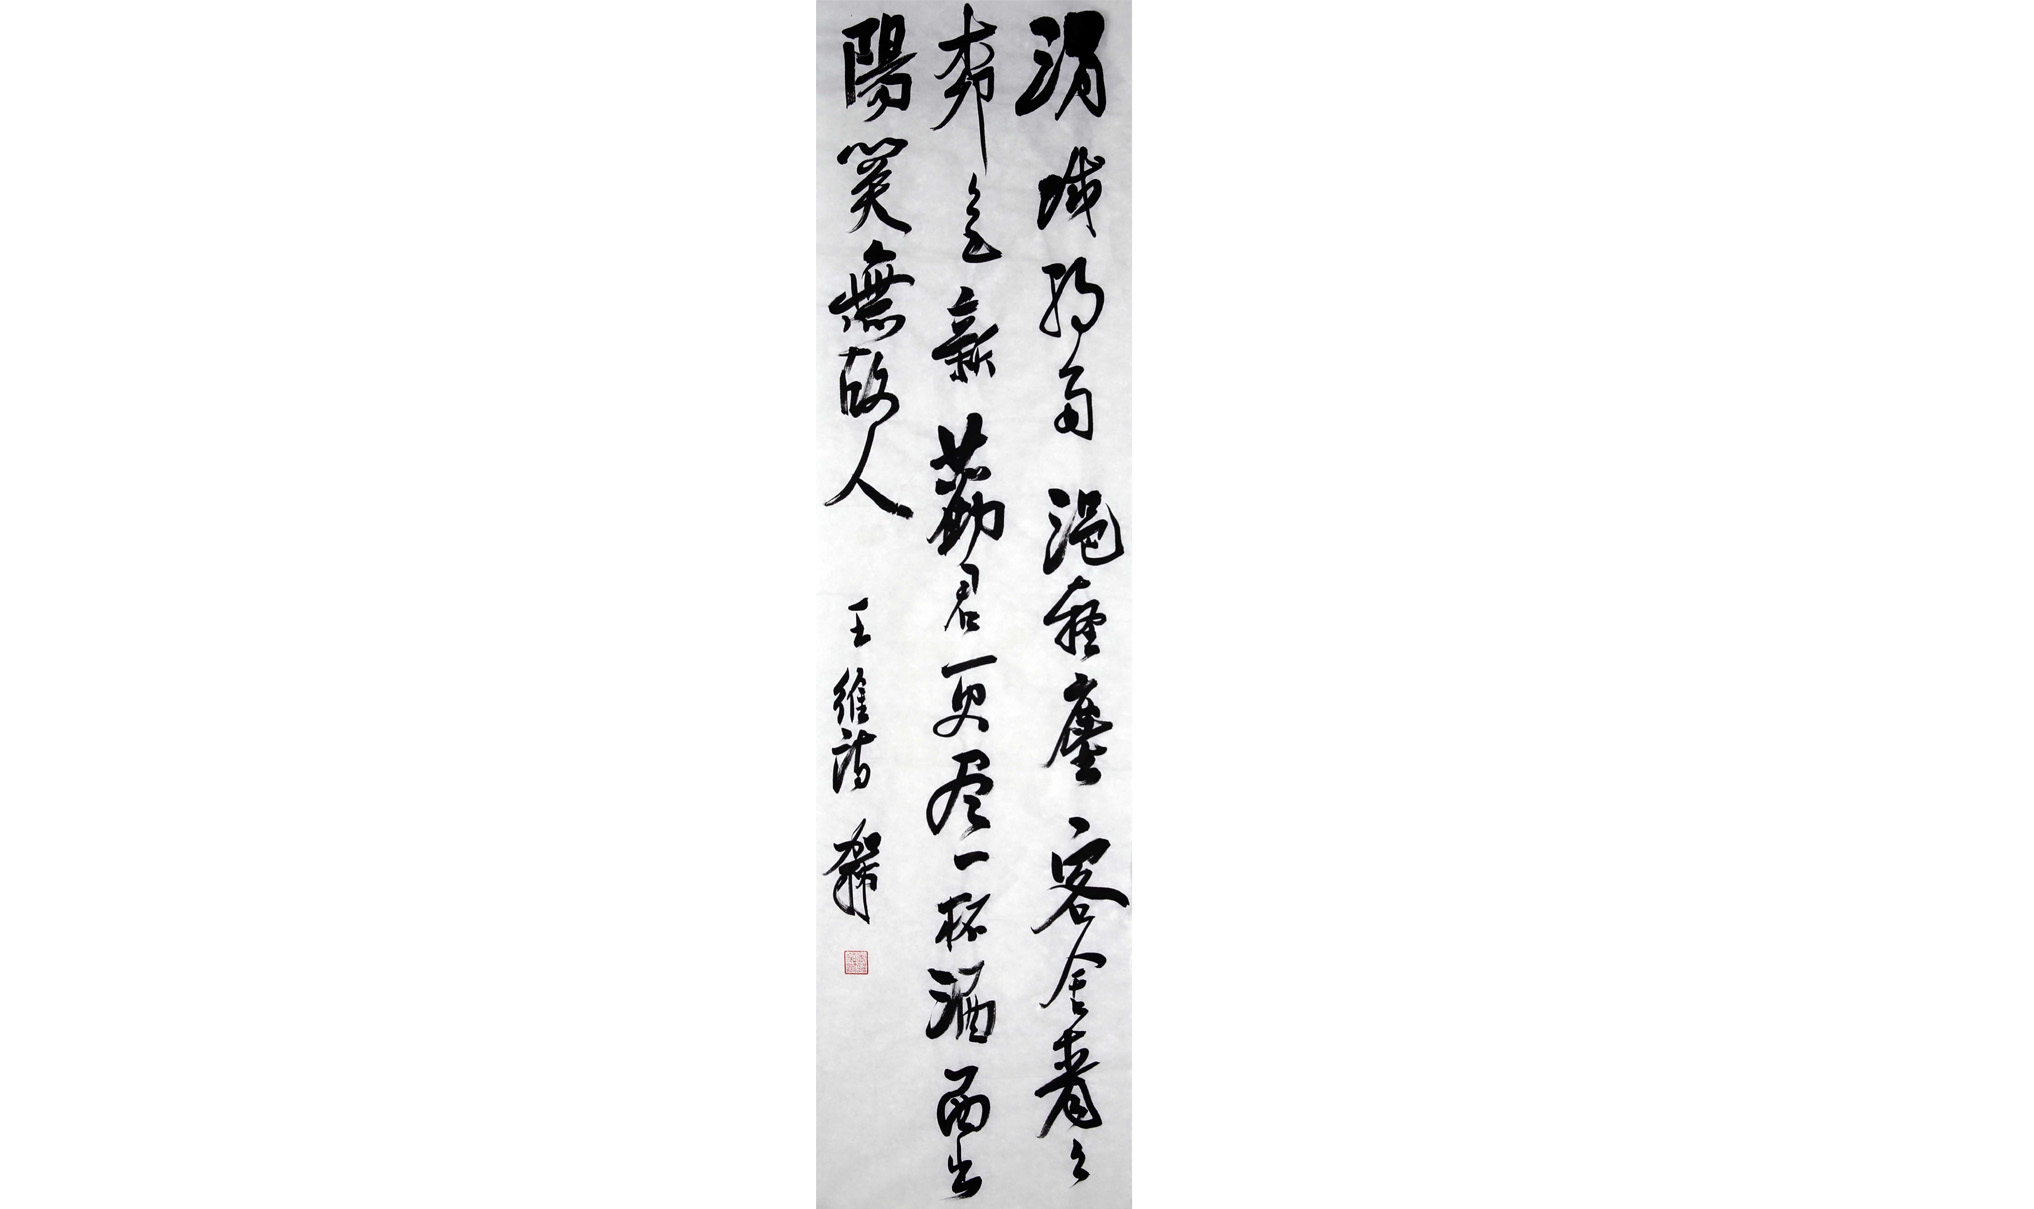 渭城朝雨浥輕塵客舍青々
柳色新勸君更尽一杯酒西出
陽关無故人
王維詩